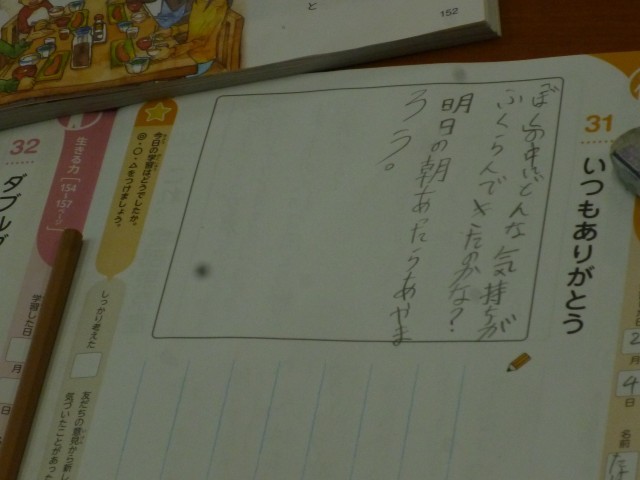 と
152
31
いつもありがとう
「ぼくの中でどんな気持ちが
ふくらんできたのかな?
明日の朝あったらあやま
ろう。
今日の学習はどうでしたか。
◎・○・△をつけましょう。
しっかり考えた
友だちの意見から新し
気づいたことがあった
生きる力
[154~157ページ]
32
学習した日
月
日
2
月
4
日
名前